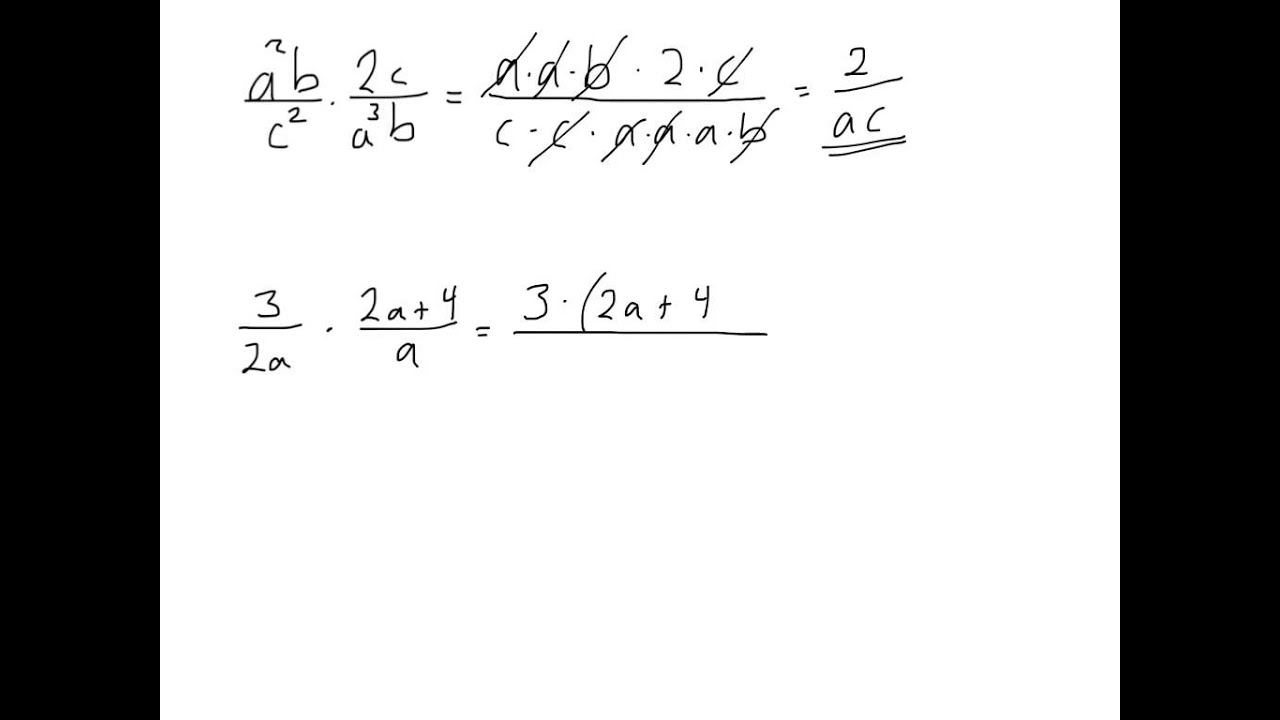 a²b/c² · 2c/a³b = a·a·b·2·c/c·c·a·a·a·b = 2/ac
3/2a · 2a+4/a = 3·(2a+4